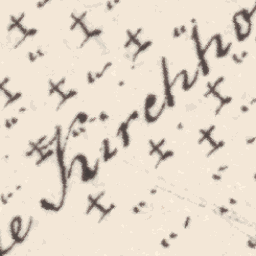 e Kirchho